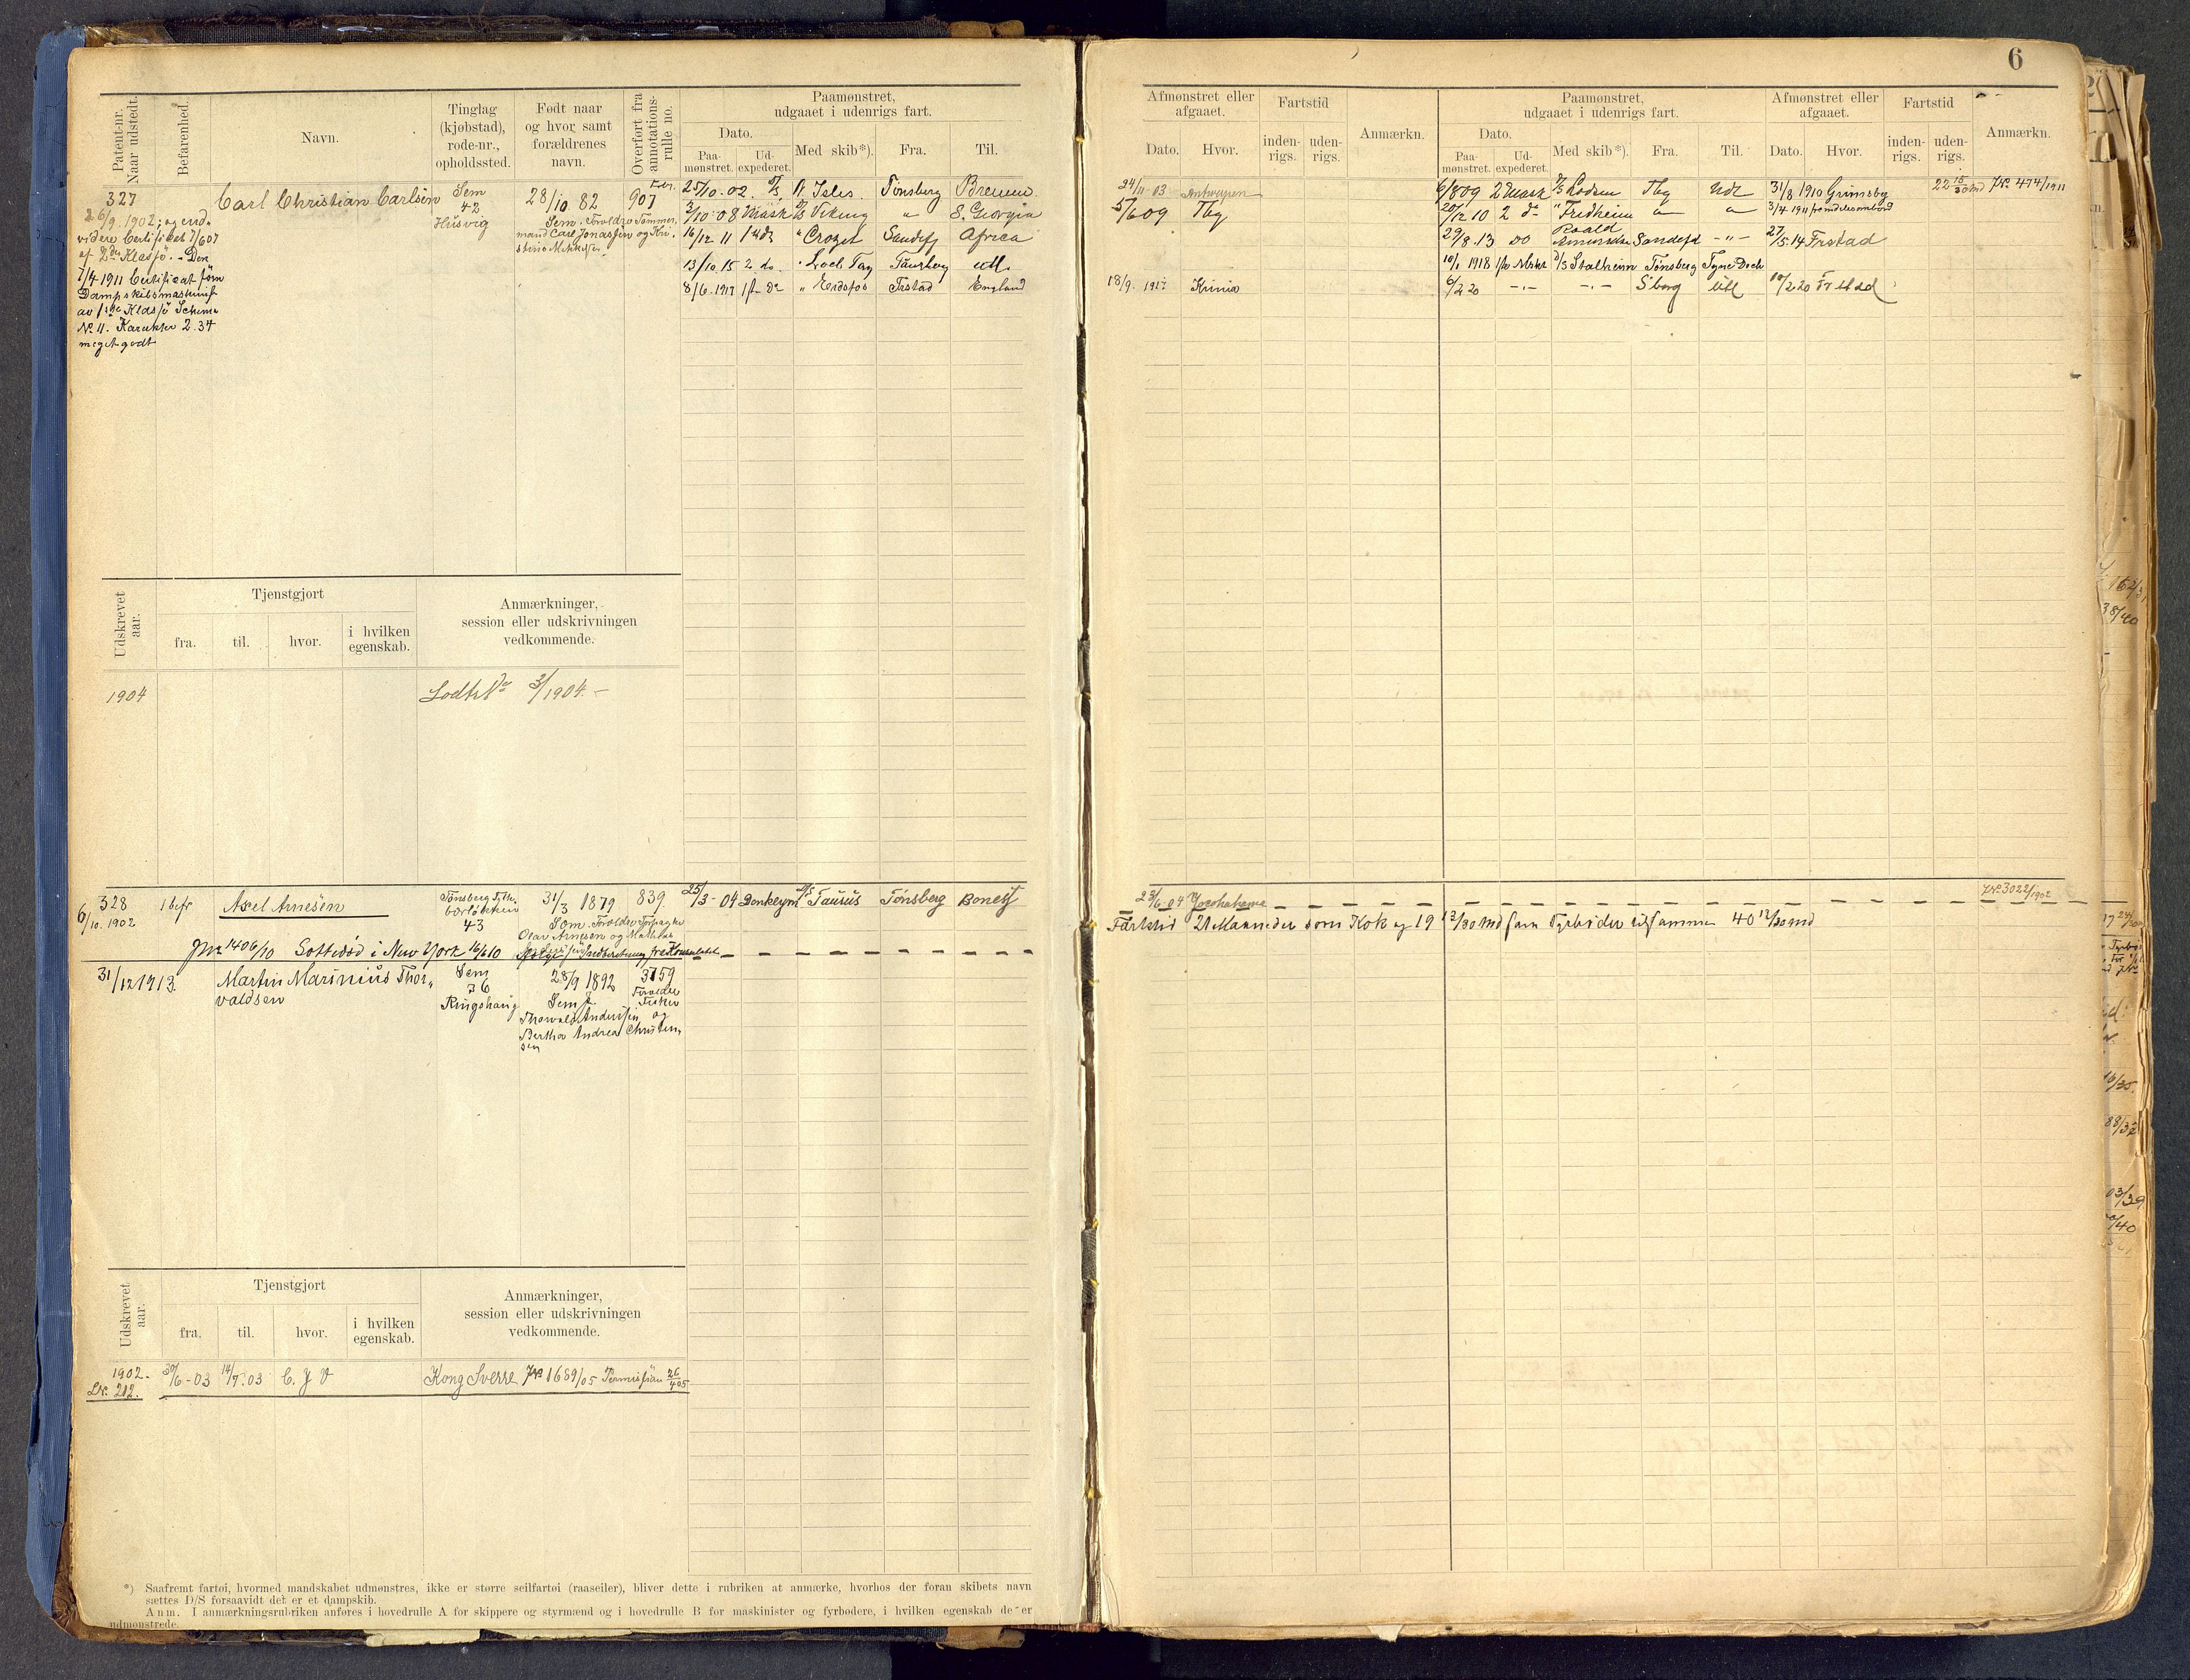 6
Patent-nr.
Naar udstedt.
Befarenhed.
Navn.
Tinglag
(kjøbstad),
rode-nr.,
opholdssted.
Født naar
og hvor samt
forældrenes
navn.
Overført fra
annotations-
rulle no.
Paamønstret,
udgaaet i udenrigs fart.
Dato.
Paa-
mønstret.
Ud-
expederet.
Med skib*).
Fra.
Til.
327
26/9 1902; og end-
videre Certifikat 7/6 07
af 2den Klasse. - Den
7/4 1911 Certificat som
Dampskibsmaskinist
av 1ste Klasse Schema
No 11. Karakter 2.34
meget godt
Carl Christian Carlsen
Sem
42
Husvig
28/10. 82
Sem. Forældre Tømmer-
mand Carl Jonassen og
907
25/10-02. Isles Tønsberg Bremen
3/10-08 Mask D/S Viking " S. Georgia
16/12 11 " Crozet Sandefj Africa
13/10.15 2 do. " Loch Tay Tønsberg utl.
8/6.1917 1st do " Eidsfos Frstad England
Udskrevet
aar.
Tjenstgjort
fra.
til.
hvor.
i hvilken
egenskab.
Anmærkninger,
session eller udskrivningen
vedkommende.
1904
3/1904.-
328
6/10. 1902
1 befr
Axel Arnesen
Tønsberg
43
31/3 1879
Sem. Forældre
Olav Arnesen og Mathilde
839.
25/3-04 Donkeym D/S Taurus Tønsberg
Jno 1406/10 Sottedød i New York 16/6 10
31/12 1913.
Martin Marinius Thor-
valdsen
Sem
36
Ringshaug
28/9 1892
Sem f.
Thorvald Andersen og
Bertha Andrea Christen-
sen
3159
Forældre
Fisker
Udskrevet
aar.
Tjenstgjort
fra.
til.
hvor.
i hvilken
egenskab.
Anmærkninger,
session eller udskrivningen
vedkommende.
1902.
Lnr. 212.
30/6-03 14/7.03 C. J V Kong Sverre Jno 1689/05 Permission 26/4 05
*) Saafremt fartøi, hvormed mandskabet udmønstres, ikke er større seilfartøi (raaseiler), bliver dette i rubriken at anmærke, hvorhos der foran skibets navn
sættes D/S forsaavidt det er et dampskib.
Anm. I anmærkningsrubriken anføres i hovedrulle A for skippere og styrmænd og i hovedrulle B for maskinister og fyrbødere, i hvilken egenskab de er
udmønstrede.
Afmønstret eller
afgaaet.
Dato.
Hvor.
Fartstid
inden-
rigs.
uden-
rigs.
Anmærkn.
Paamønstret,
udgaaet i udenrigs fart.
Dato.
Paa-
mønstret.
Ud-
expederet.
Med skib*).
Fra.
Til.
Afmønstret eller
afgaaet.
Dato.
Hvor.
Fartstid
inden-
rigs.
uden-
rigs.
Anmærkn.
24/11 03 Antwerpen
5/6 09 Tbg
18/9. 1917 Kr.nia
6/8 09 2 Mask D/S Tbg Udl 31/8 1910 Grimsby 22 15/30 md Jno 474/1911
20/12 10 2 do " Fredheim " " 3/4 1911 fremdeles ombord
29/8.13 do Roald Amundsen Sandefd -"- 27/5.14 Frstad
10/1 1918 1st Mskt D/S Stalheim Tønsberg Tyne Dock
6/2 20 -"- -"- S borg Utl 10/2 20 Frstad
Jno 3022/1902
23/6 04 Yocohahama
Fartstid 21 Maaneder som Kok og 19 13/30 md som Fyrbøder tilsammen 40 13/30 md